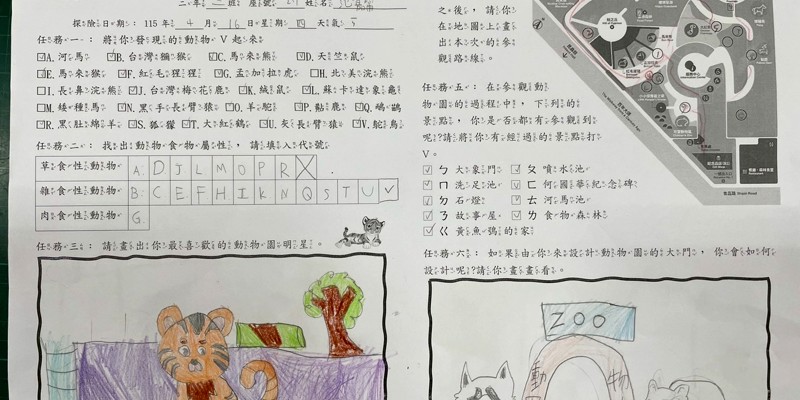 二年二班 座號 姓名
探險日期：115年4月16日星期四天氣
任務一：將你發現的動物V起來
A.河馬 B.台灣獼猴 C.馬來熊 D.天竺鼠
E.馬來猴 F.紅毛猩猩 G.孟加拉虎 H.北美浣熊
I.長鼻浣熊 J.台灣梅花鹿 K.絨鼠 L.蘇卡達象龜
M.矮種馬 N.黑手長臂猿 O.羊駝 P.黇鹿 Q.鴯鶓
R.黑肚綿羊 S.狐獴 T.大紅鶴 U.灰長臂猿 V.鴕鳥
任務二：找出動物食物屬性，請填入代號
草食性動物 A. D J L M O P R X
雜食性動物 B. C E F H I K N Q S T U V
肉食性動物 G.
任務三：請畫出你最喜歡的動物園明星。
之後，請你
在地圖上畫
出本次的參
觀路線。
任務五：在參觀動
物園的過程中，下列的
景點，你是否都有參觀到
呢?請將你有經過的景點打
V。
ㄅ大象門 ㄆ噴水池
ㄇ洗足池 ㄈ何國華紀念碑
ㄉ石燈 ㄊ河馬池
ㄋ故事屋 ㄌ食物森林
ㄍ黃魚鴞的家
任務六：如果由你來設計動物園的大門，你會如何
設計呢?請你畫畫看。
ZOO
動 物